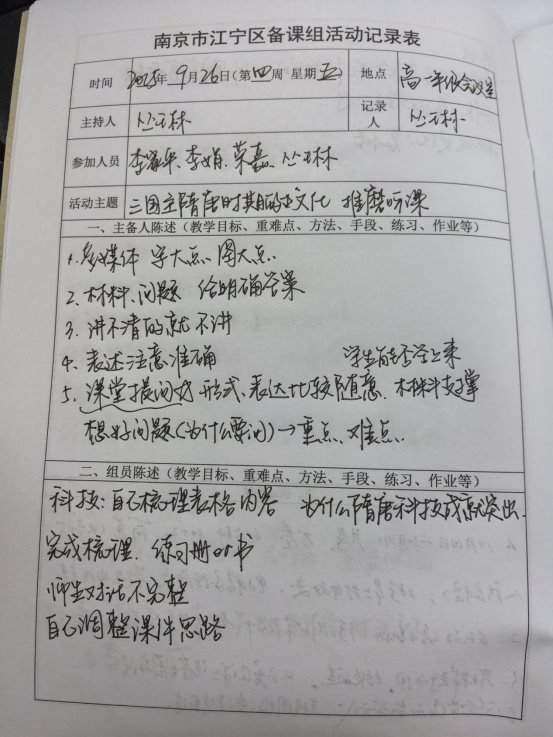 南京市江宁区备课组活动记录表
时间 2025年9月26日(第四周 星期五) 地点 高一年级会议室
主持人 丛玉林 记录人 丛玉林
参加人员 李家乐、李娟、荣嘉、丛玉林
活动主题 三国至隋唐时期的文化 推磨听课
一、主备人陈述(教学目标、重难点、方法、手段、练习、作业等)
1. 多媒体 字大点、图大点
2. 材料、问题 给明确答案
3. 讲不清的就不讲
4. 表述注意准确 学生能否学上来
5. 课堂提问 形式、表达比较随意、材料支撑
想好问题(为什么要问)→重点、难点
二、组员陈述(教学目标、重难点、方法、手段、练习、作业等)
科技:自己梳理表格内容 为什么隋唐科技成就突出
完成梳理、练习册or书
师生对话不完整
自己调整课件思路